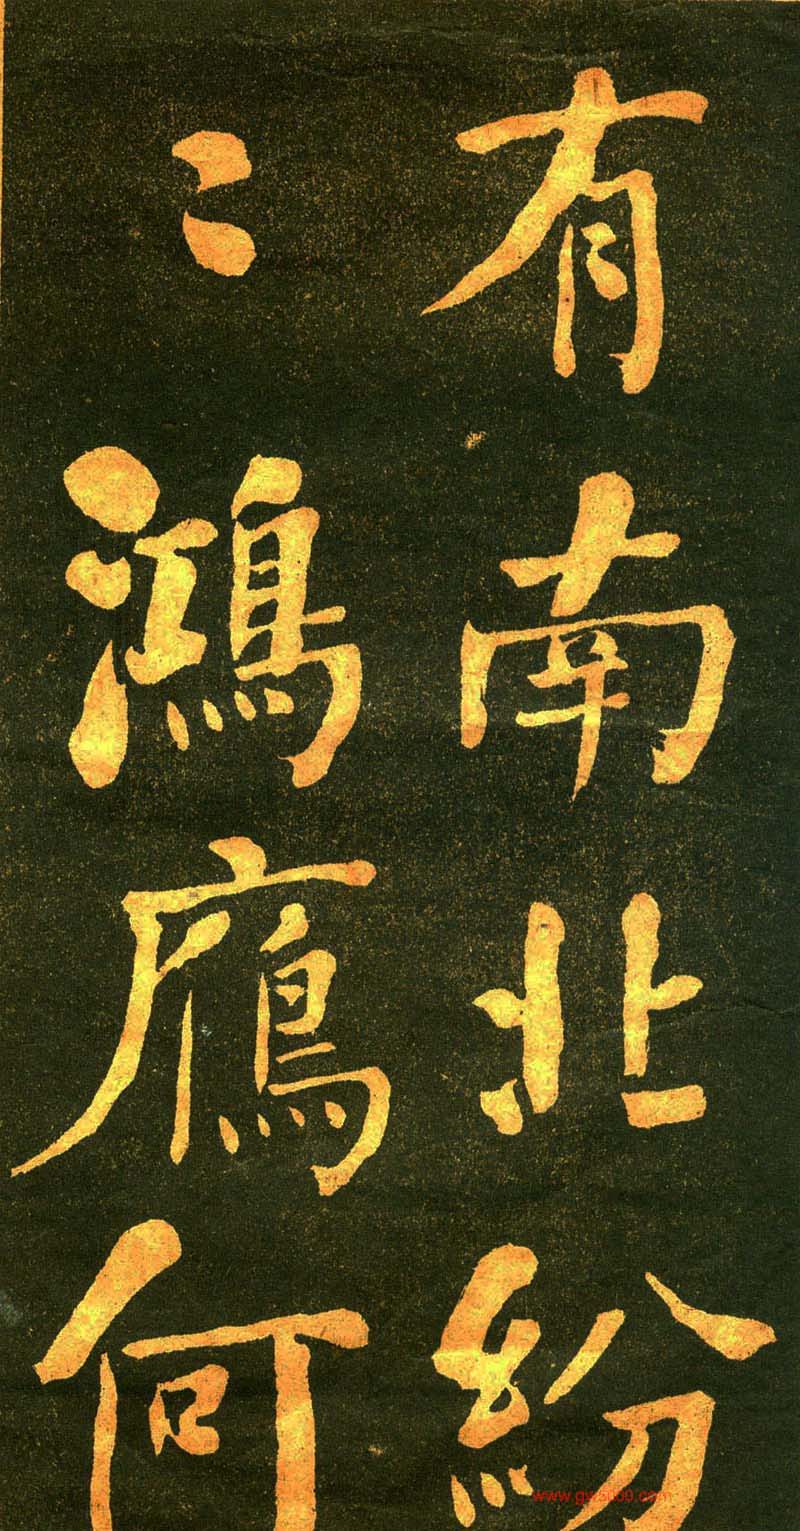 有南北紛
〻鴻鴈何
www.gw5000.com